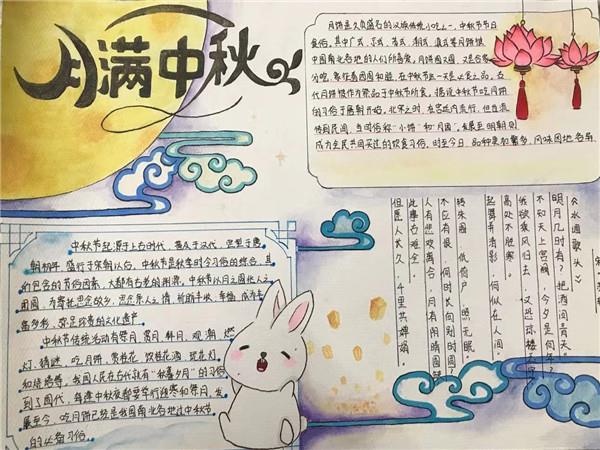 月满中秋
月饼是久负盛名的汉族传统小吃之一,中秋节节日
食俗。其中广式、京式、苏式、潮式、滇式等月饼被
中国南北各地的人们所喜食。月饼圆又圆,又是合家
分吃,象征着团圆和睦,在中秋节这一天是必食之品。古
代月饼被作为祭品于中秋节所食。据说中秋节吃月饼
的习俗于唐朝开始。北宋之时,在宫廷内流行,但也流
传到民间,当时俗称"小饼"和"月团"。发展至明朝则
成为全民共同实过的饮食习俗。时至今日,品种更加繁多,风味因地各异
中秋节起源于上古时代,普及于汉代,定型于唐
朝初年,盛行于宋朝以后。中秋节是秋季时令习俗的综合,其
所包含的节俗因素,大都有古老的渊源。中秋节以月之圆兆人之
团圆,为寄托思念故乡,思念亲人之情,祈盼丰收、幸福,成为丰
富多彩、弥足珍贵的文化遗产
中秋节传统活动有祭月、赏月、拜月、观潮、燃
灯、猜谜、吃月饼、赏桂花、饮桂花酒、玩花灯
和烧塔等。我国人民在古代就有"秋暮夕月"的习俗
到了周代,每逢中秋夜都要举行迎寒和祭月。发
展至今,吃月饼已经是我国南北各地过中秋节
的必备习俗。
《水调歌头》
明月几时有?把酒问青天。
不知天上宫阙,今夕是何年?
我欲乘风归去,又恐琼楼玉宇
高处不胜寒。
起舞弄清影,何似在人间。
转朱阁,低倚户,照无眠。
不应有恨,何时长向别时圆?
人有悲欢离合,月有阴晴圆缺
此事古难全。
但愿人长久,千里共婵娟。